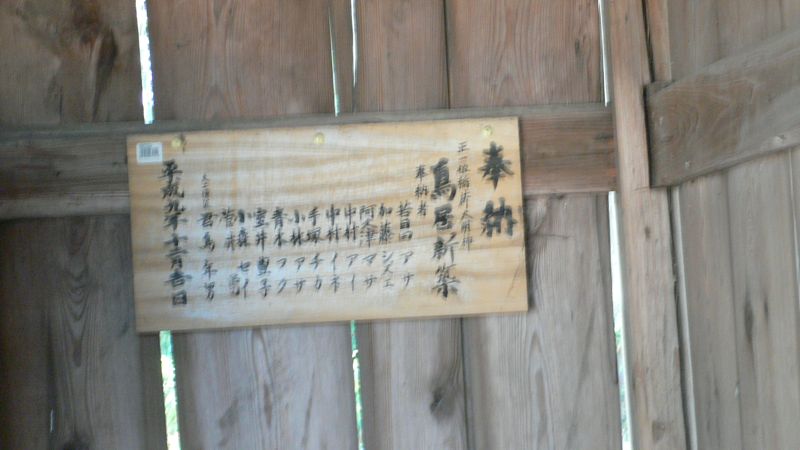 奉納
正一位稲荷大明神
鳥居新築
奉納者
若目田 アサ
加藤 シズエ
阿久津 マサ
中村 アイ
中村 イネ
手塚 チカ
小林 アサ
青木 フク
室井 豊子
小森 セイ
菅井
君島 年男
平成九年十二月吉日